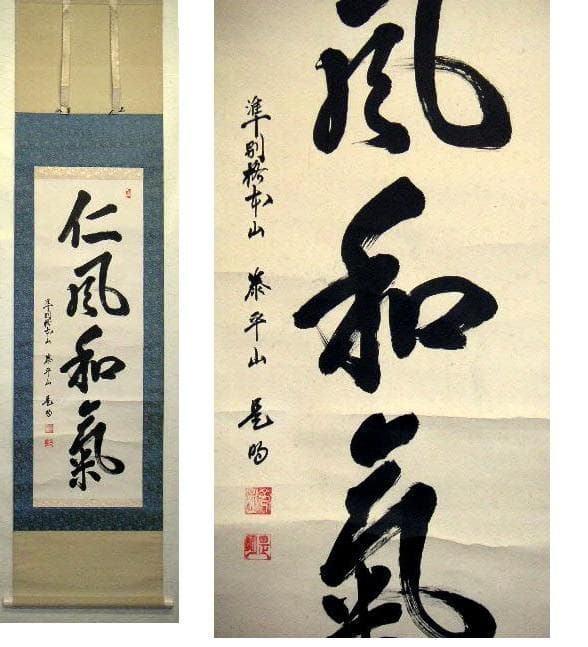 仁風和氣
準別格本山 泰平山 是的
風和氣
準別格本山 泰平山 是的